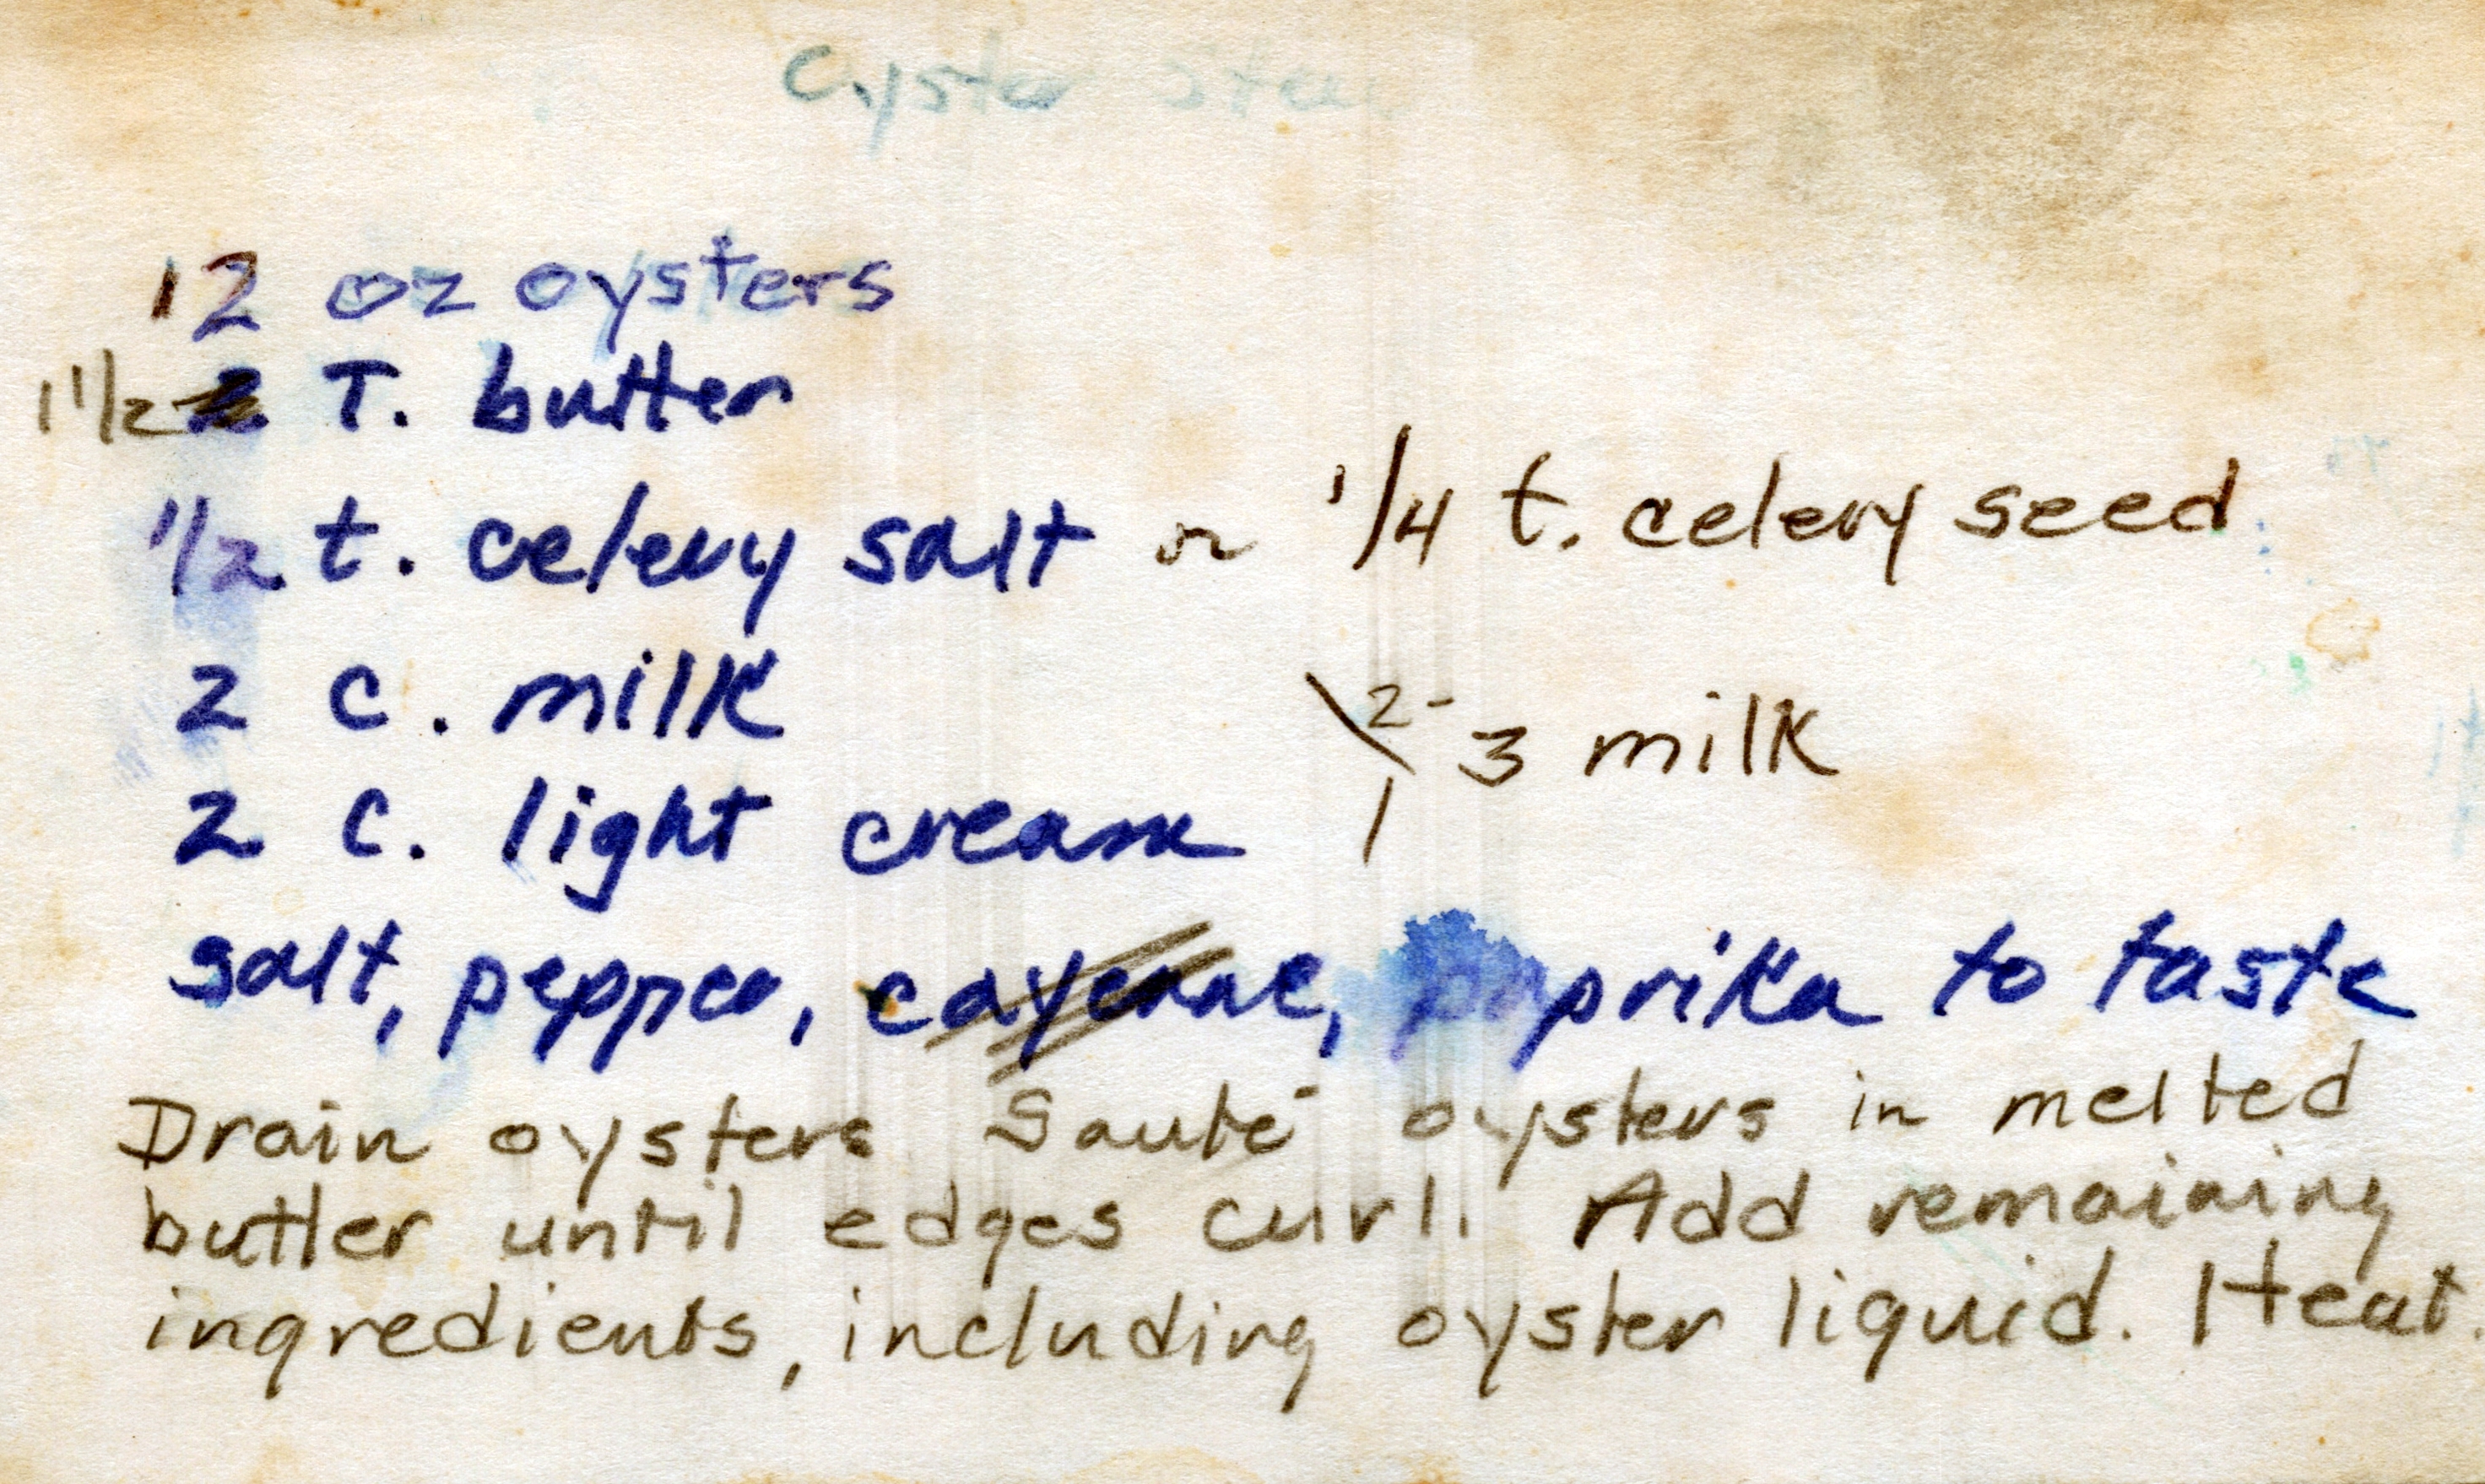 Oyster Stew
12 oz oysters
1 1/2 T. butter
1/2 t. celery salt or 1/4 t. celery seed
2 c. milk
2-3 milk
2 c. light cream
salt, pepper, cayenne, paprika to taste
Drain oysters Sauté oysters in melted
butter until edges curl. Add remaining
ingredients, including oyster liquid. Heat.